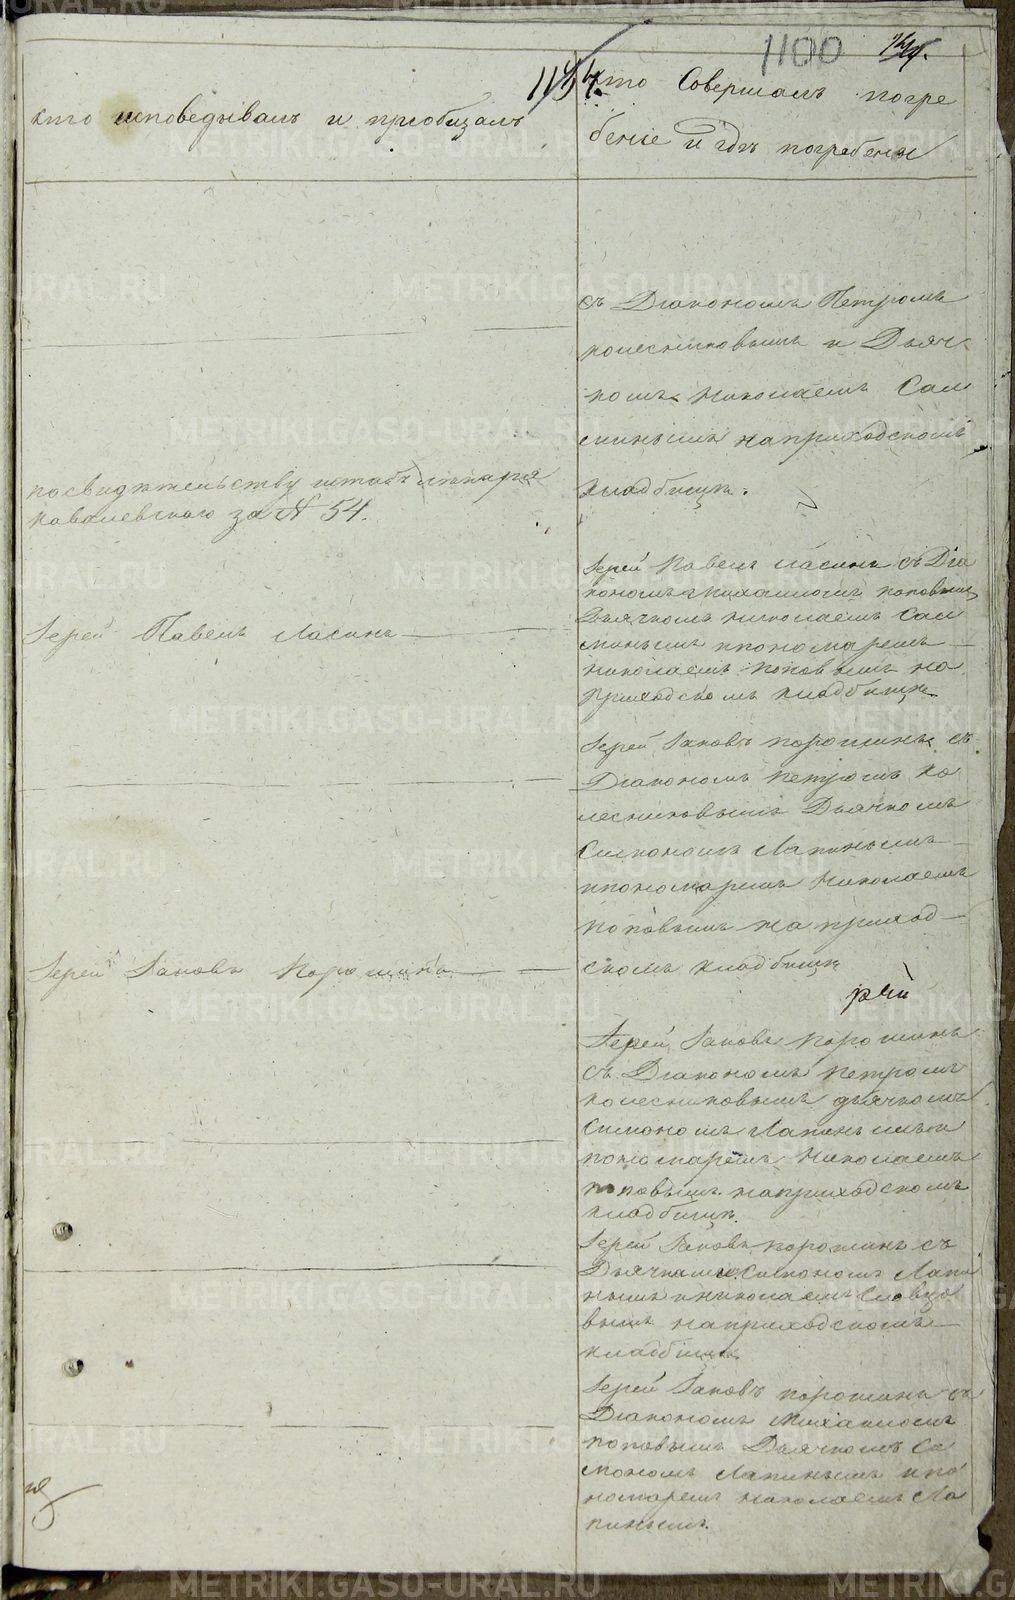 1100
1157
кто исповедывалъ и приобщалъ
кто Совершалъ погре
бенiе и гдѣ погребены
съ Дiакономъ Петромъ
колесниковымъ и Дьяч
комъ Николаемъ Сал
на приходскомъ
кладбищѣ.
по свидѣтельству штабъ лекаря
ковалевскаго за № 54.
Iерей Павелъ Ласинъ
Iерей Павелъ Ласинъ съ Дiа
кономъ Михаиломъ поповымъ
Дьячкомъ Николаемъ Сал
пономаремъ
Николаемъ поповымъ на
приходскомъ кладбищѣ
Iерей Iаковъ порошинъ съ
Дiакономъ петромъ ко
лесниковымъ Дьячкомъ
Симономъ Лапинымъ
ипономаремъ Николаемъ
поповымъ на приход
скомъ кладбищѣ
Iерей Iаковъ Порошинъ
рей
Iерей Iаковъ порошинъ
съ Дiакономъ петромъ
колесниковымъ дьячкомъ
Симономъ Лапинымъ и
пономаремъ Николаемъ
поповымъ на приходскомъ
кладбищѣ.
Iерей Iаковъ порошинъ съ
Дьячками Симономъ Лапи
нымъ и николаемъ Словцо
вымъ на приходскомъ
кладбищѣ
Iерей Iаковъ порошинъ съ
Дiакономъ Михаиломъ
поповымъ Дьячкомъ Си
мономъ Лапинымъ и по
номаремъ николаемъ Ла
пинымъ.
METRIKI.GASO-URAL.RU